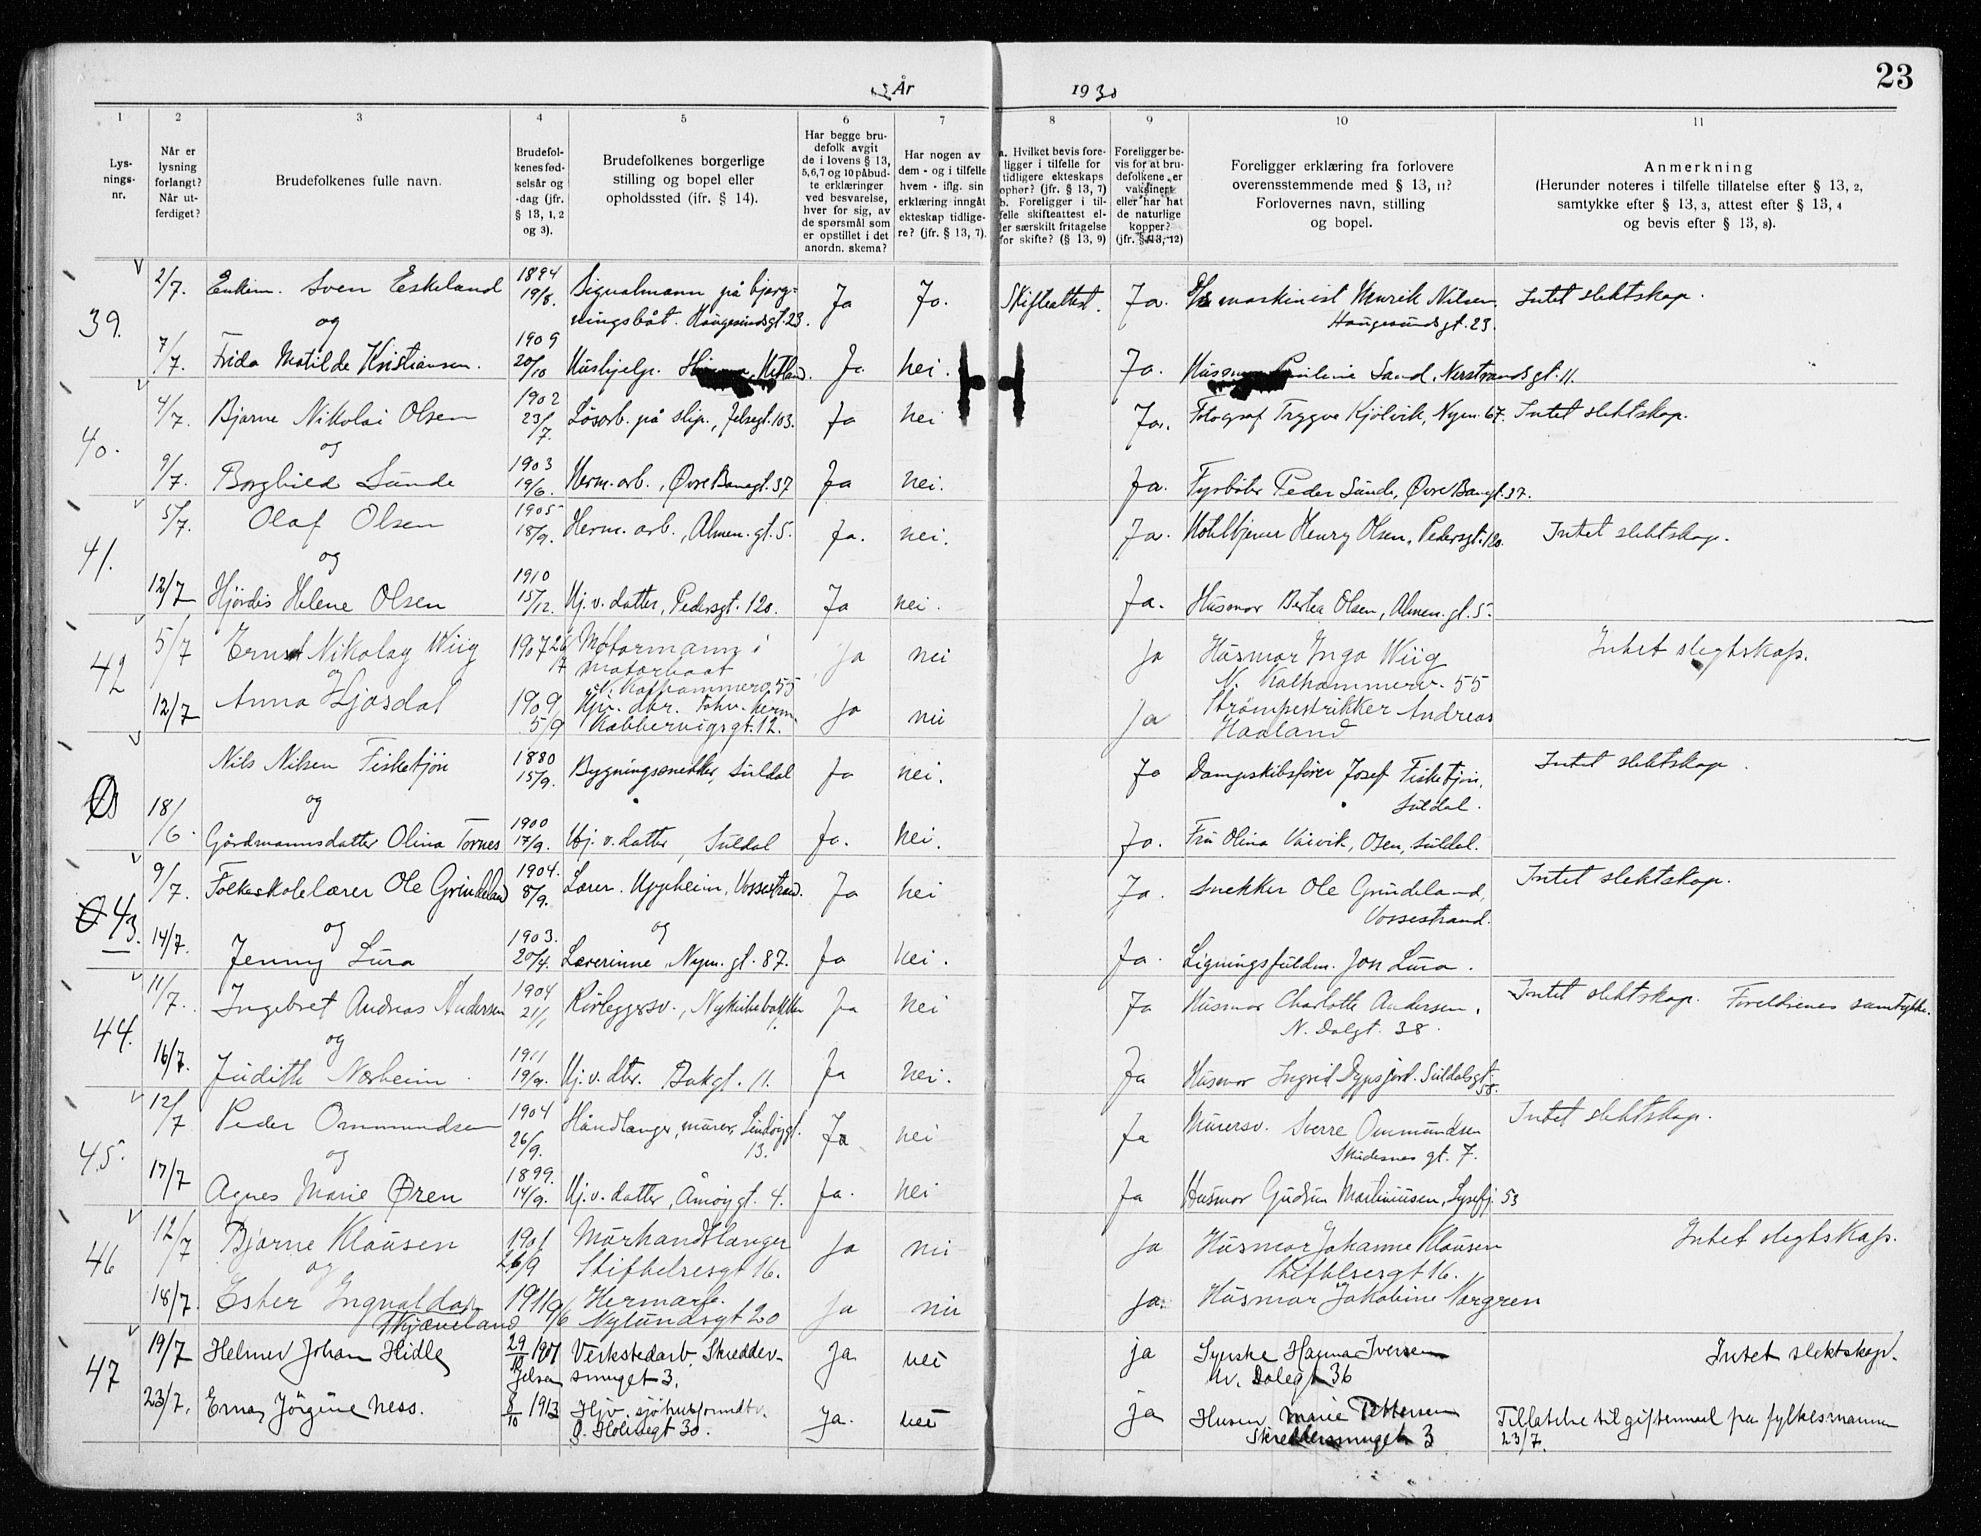 År 1930
23
1 2 3 4 5 6 7 8 9 10 11
Lysningsnr.
Når er lysning forlangt? Når utferdiget?
Brudefolkenes fulle navn.
Brudefolkenes fødselsår og -dag (jfr. § 13, 1, 2 og 3).
Brudefolkenes borgerlige stilling og bopel eller opholdssted (jfr. § 14).
Har begge brudefolk avgit de i lovens § 13, 5, 6, 7 og 10 påbudte erklæringer ved besvarelse, hver for sig, av de spørsmål som er opstillet i det anordn. skema?
Har nogen av dem - og i tilfelle hvem - iflg. sin erklæring inngåt ekteskap tidligere? (jfr. § 13, 7).
a. Hvilket bevis foreligger i tilfelle for tidligere ekteskaps ophør? (jfr. § 13, 7) b. Foreligger i tilfelle skifteattest eller særskilt fritagelse for skifte? (§ 13, 9)
Foreligger bevis for at brudefolkene er vaksinert eller har hat de naturlige kopper? (jfr. § 13, 12)
Foreligger erklæring fra forlovere overensstemmende med § 13, 11? Forlovernes navn, stilling og bopel.
Anmerkning (Herunder noteres i tilfelle tillatelse efter § 13, 2, samtykke efter § 13, 3, attest efter § 13, 4 og bevis efter § 13, 8).
39. 2/7. Enkem. Sven Eskeland 1894 19/8. Signalmann på bjerg-
ningsbåt. Haugesundsgt. 23. Ja Ja. Skifteattest. Ja. maskinist Henrik Nilsen, Haugesundsgt. 23. Intet slektskap.
og
7/7. Frida Matilde Kristiansen. 1909 20/10 Hushjelp. Ja. nei. Ja. Sand, Nerstrandsgt. 11.
40. 4/7. Bjarne Nikolai Olsen 1902 23/7. Løsarb. på slip., Jelsegt. 103. Ja nei Ja. Fotograf Trygve Kjølvik, Nym. 67. Intet slektskap.
og
9/7. Borghild Sunde 1903 19/6. Herm. arb., Øvre Banegt. 37 Ja nei. Ja. Fyrbøter Peder Sunde, Øvre Bangt. 37.
41. 5/7. Olaf Olsen 1905 18/9. Herm. arb., Almen. gt. 5. Ja. nei. Ja. Henry Olsen, Pedersgt. 120. Intet slektskap.
og
12/7 Hjørdis Helene Olsen 1910 15/12. Hj. v. datter, Pedersgt. 120. Ja nei. Ja. Husmor Berta Olsen, Almen. gt. 5.
42 5/7 Ernst Nikolay Wiig 1907 Motormann i
motorbaat
N. Kalhammerv. 55 Ja nei ja Husmor Inga Wiig
N. Kalhammerv. 55 Intet slegtskap.
og
12/7 Anna Hjosdal 1909 5/9 Hjv. dtr. herm.
Kabbervigsgt. 12. ja nei ja Strømpestrikker Andreas
Haaland
Nils Nilsen Fisketjøn 1880 15/9. Bygningssnekker, Suldal Ja nei. Ja Dampskibsfører Josef Fisketjøn,
Suldal. Intet slektskap.
og
18/6. Gårdmannsdatter Olina Tornes 1900 17/9. Hj. v. datter, Suldal Ja. nei. Ja. Fru Olina Vaivik, Osen, Suldal.
43. 9/7. Folkeskolelærer Ole Grindeland 1904. 8/9. Lærer. Uppheim, Vossestrand. Ja nei Ja. Snekker Ole Grindeland,
Vossestrand. Intet slektskap.
og og
14/7. Jenny Lura 1903. 20/4. Lærerinne, Nym. gt. 87. Ja nei. Ja. Ligningsfuldm. Jon Lura.
44. 11/7. Ingebret Andreas Andersen 1904 21/1 Rørleggersv., Nykirkebakken Ja nei Ja Husmor Charlotte Andersen.
N. Dalgt. 38. Intet slektskap. Foreldrenes samtykke.
og
16/7. Judith Nærheim. 1911 19/9. Hj. v. dtr. Bakgt. 11. Ja nei. Ja Husmor Ingrid Suldalsgt. 58.
45. 12/7 Peder Ommundsen 1904 26/9. Håndlanger, murer, Lindøygt.
13. Ja nei Ja Murersv. Sverre Ommundsen
Skudesnes gt. 7. Intet slektskap.
og
17/7 Agnes Marie Øren 1899. 14/9. Hj. v. datter, Åmøygt. 4. Ja. nei Ja Husmor Gudrun Martinussen, Lysefj. 53
46 12/7 Bjarne Klausen 1901 26/9 Murhandtlanger
Stiftelsesgt 16. ja nei ja Husmor Johanne Klausen
Stiftelsesgt 16. Intet slegtskap.
og
18/7. Ester Ingvalda
Skjæveland 1911 9/6 Hermarb.
Nylundsgt 20 ja nei ja. Husmor Jakobine Norgren
47 19/7 Helmer Johan Hidle 29/10 1901
Jelsa Verkstedarb. Skredder-
smuget 3. ja nei ja Syerske Hanna Iversen
Nv. Dalegt 36 Intet slektskap.
23/7. Erna Jørgine Ness. 8/10 1913 Hjv. sjøhusformdtr.
Ø. Holmegt 30. ja. nei ja Husm. Marie Pettersen
Skreddersmuget 3 Tillatelse til giftermål fra fylkesmannen
23/7.